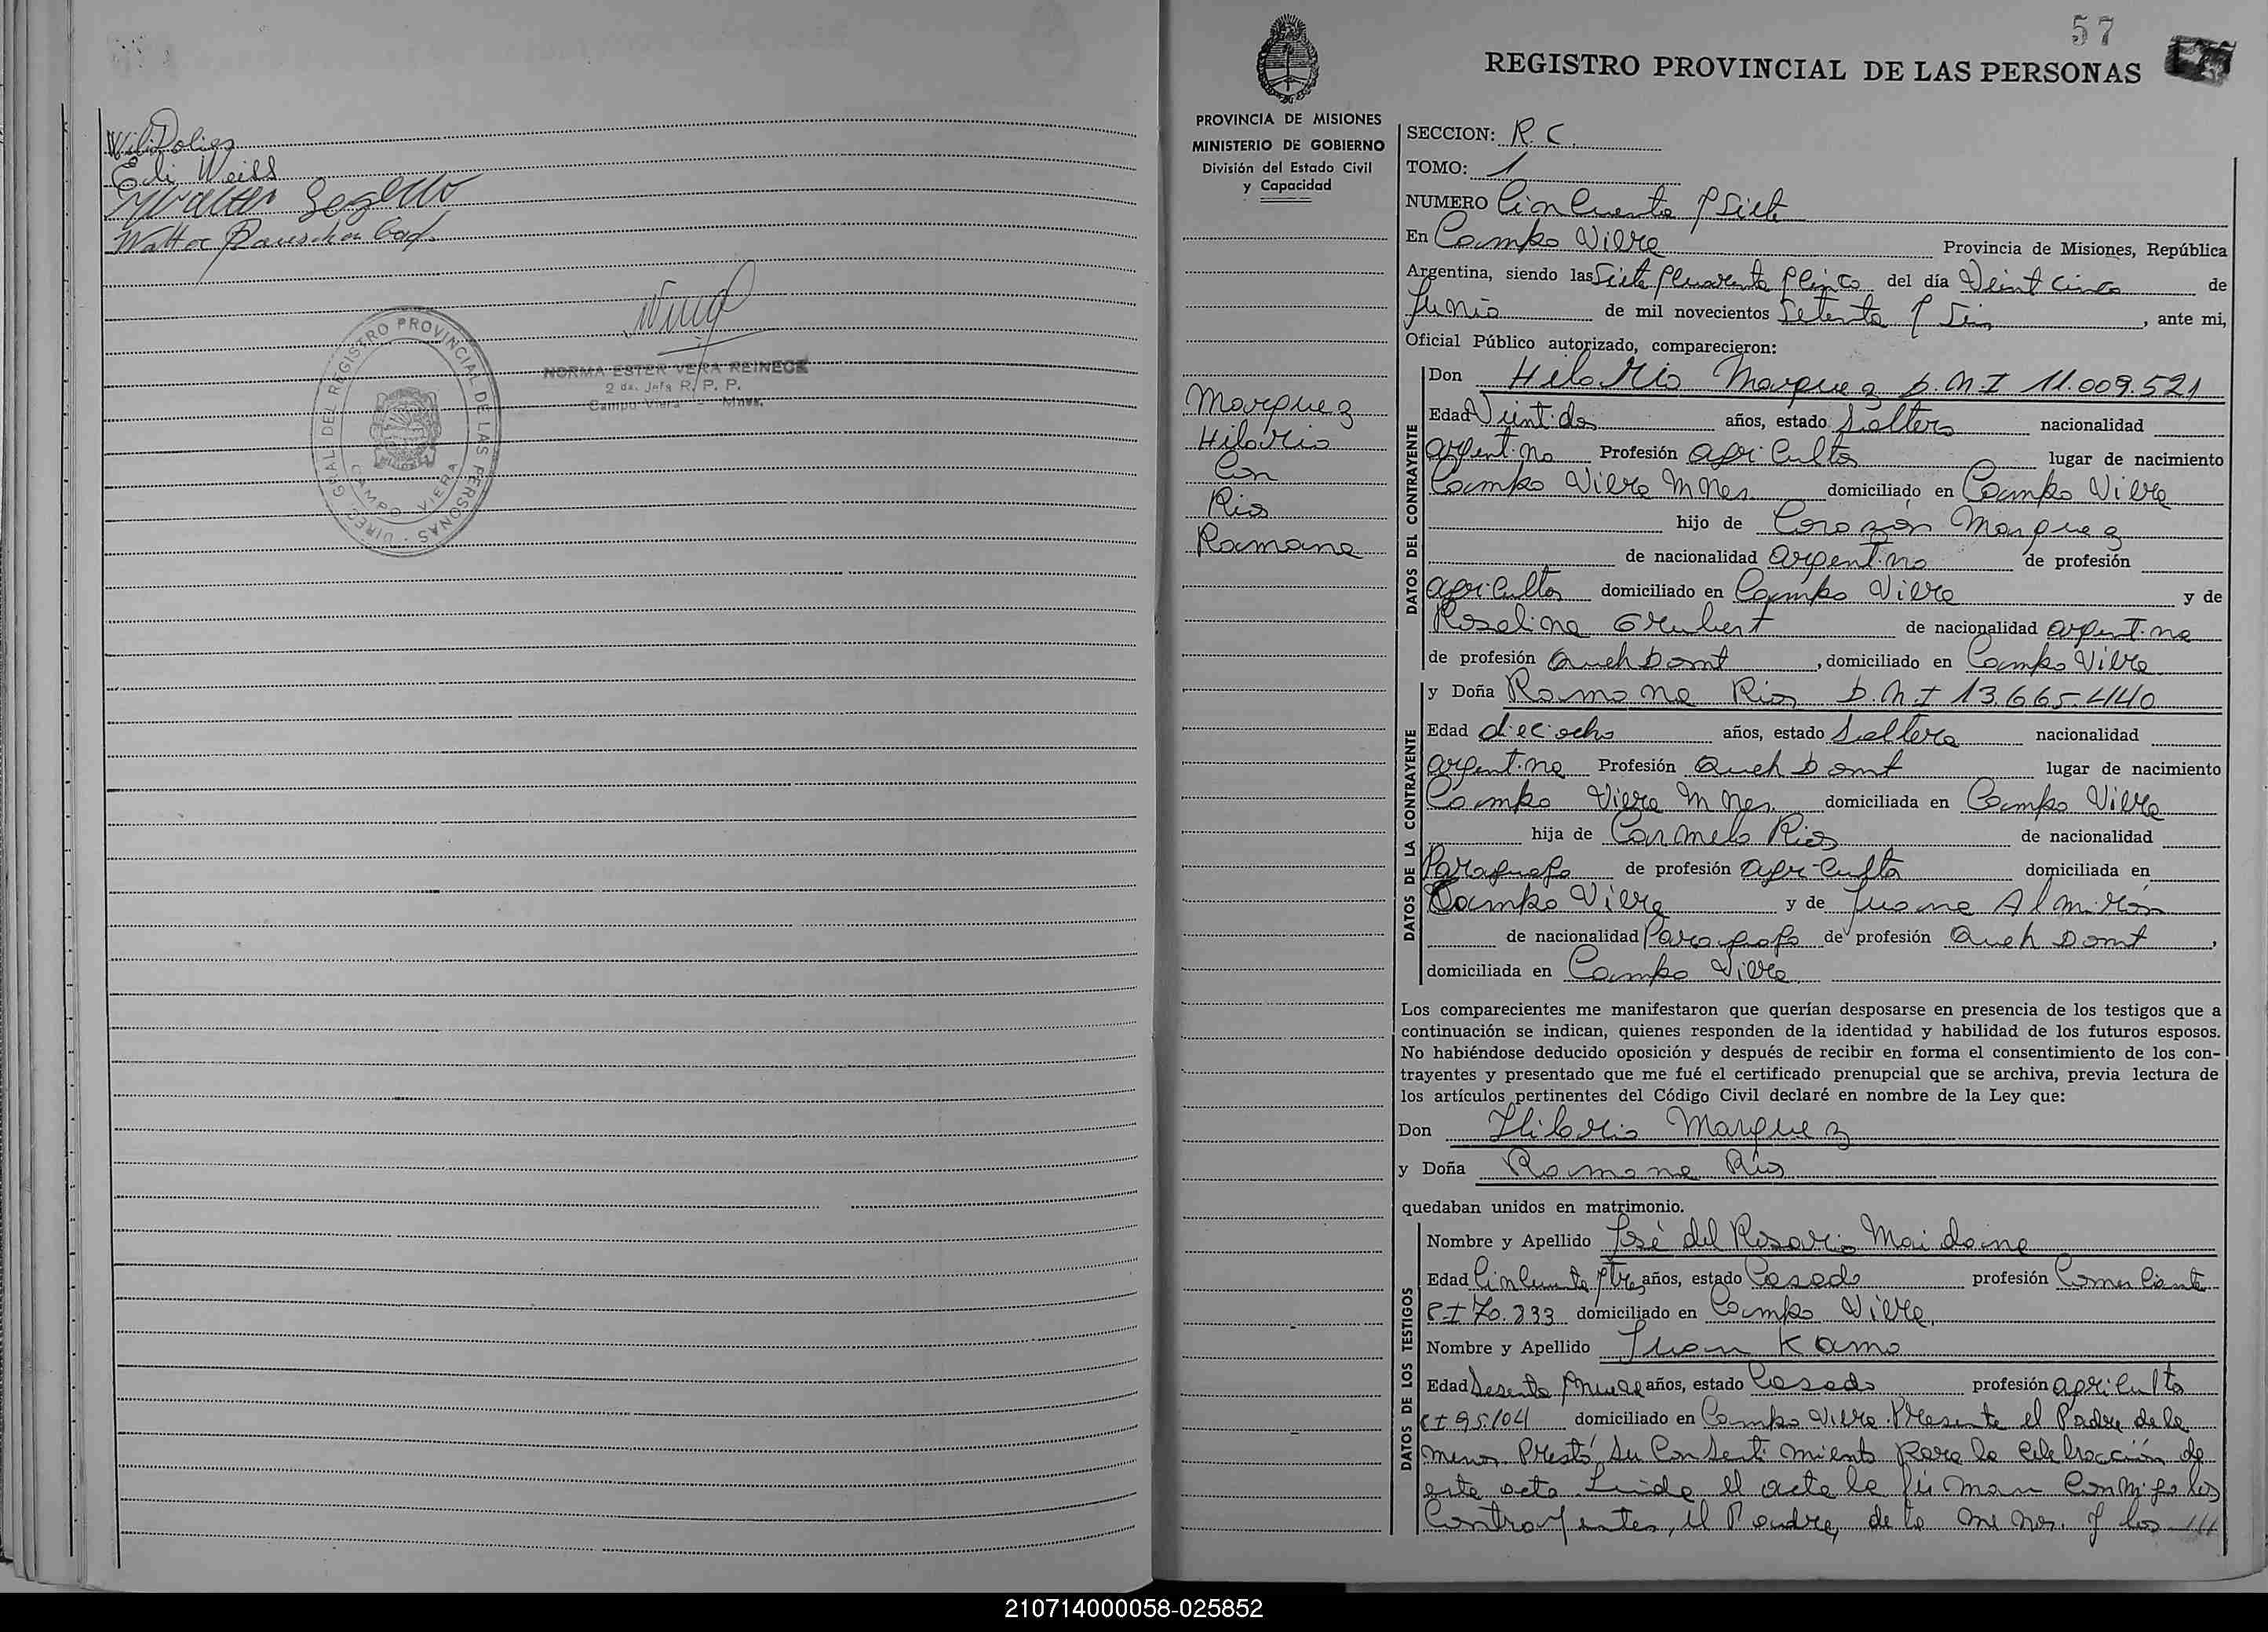 Wili Dolies
Edi Weiss
Walter
NORMA ESTER VERA REINECK
2 da. Jefa R. P. P.
Campo Viera - Mnes.
DIREC. GRAL DEL REGISTRO PROVINCIAL DE LAS PERSONAS
CAMPO VIERA
57
REGISTRO PROVINCIAL DE LAS PERSONAS
PROVINCIA DE MISIONES
MINISTERIO DE GOBIERNO
División del Estado Civil
y Capacidad
Marquez
Hilario
Con
Rios
Ramona
SECCION: R. C.
TOMO: 1
NUMERO Cincuenta y Siete
En Campo Viera Provincia de Misiones, República
Argentina, siendo las Siete y Cuarenta y Cinco del día Veinticinco de
Junio de mil novecientos Setenta y Seis, ante mi,
Oficial Público autorizado, comparecieron:
DATOS DEL CONTRAYENTE
Don Hilario Marquez D.N.I 11.009.521
Edad Veintidos años, estado Soltero nacionalidad
argentino Profesión agricultor lugar de nacimiento
Campo Viera Mnes. domiciliado en Campo Viera
hijo de Corazón Marquez
de nacionalidad argentino de profesión
agricultor domiciliado en Campo Viera y de
Roselina Grubert de nacionalidad argentina
de profesión Queh Domt, domiciliado en Campo Viera
DATOS DE LA CONTRAYENTE
y Doña Ramona Rios D.N.I 13.665.440
Edad dieciocho años, estado Soltera nacionalidad
argentina Profesión Queh Domt lugar de nacimiento
Campo Viera Mnes. domiciliada en Campo Viera
hija de Carmelo Rios de nacionalidad
Paraguayo de profesión agricultor domiciliada en
Campo Viera y de Juana Almirón
de nacionalidad Paraguaya de profesión Queh Domt,
domiciliada en Campo Viera
Los comparecientes me manifestaron que querían desposarse en presencia de los testigos que a
continuación se indican, quienes responden de la identidad y habilidad de los futuros esposos.
No habiéndose deducido oposición y después de recibir en forma el consentimiento de los con-
trayentes y presentado que me fué el certificado prenupcial que se archiva, previa lectura de
los artículos pertinentes del Código Civil declaré en nombre de la Ley que:
Don Hilario Marquez
y Doña Ramona Rios
quedaban unidos en matrimonio.
DATOS DE LOS TESTIGOS
Nombre y Apellido José del Rosario Maidana
Edad Cincuenta y Tres años, estado Casado profesión Comerciante
C.I 70.333 domiciliado en Campo Viera
Nombre y Apellido Juan Kamo
Edad Sesenta y Nueve años, estado Casado profesión agricultor
C I 95.104 domiciliado en Campo Viera. Presente el Padre de la
menor Prestó su Consentimiento para la celebración de
este acto Leida el acta la firman Conmigo los
Contrayentes, el Padre, de la menor. y los ///
210714000058-025852